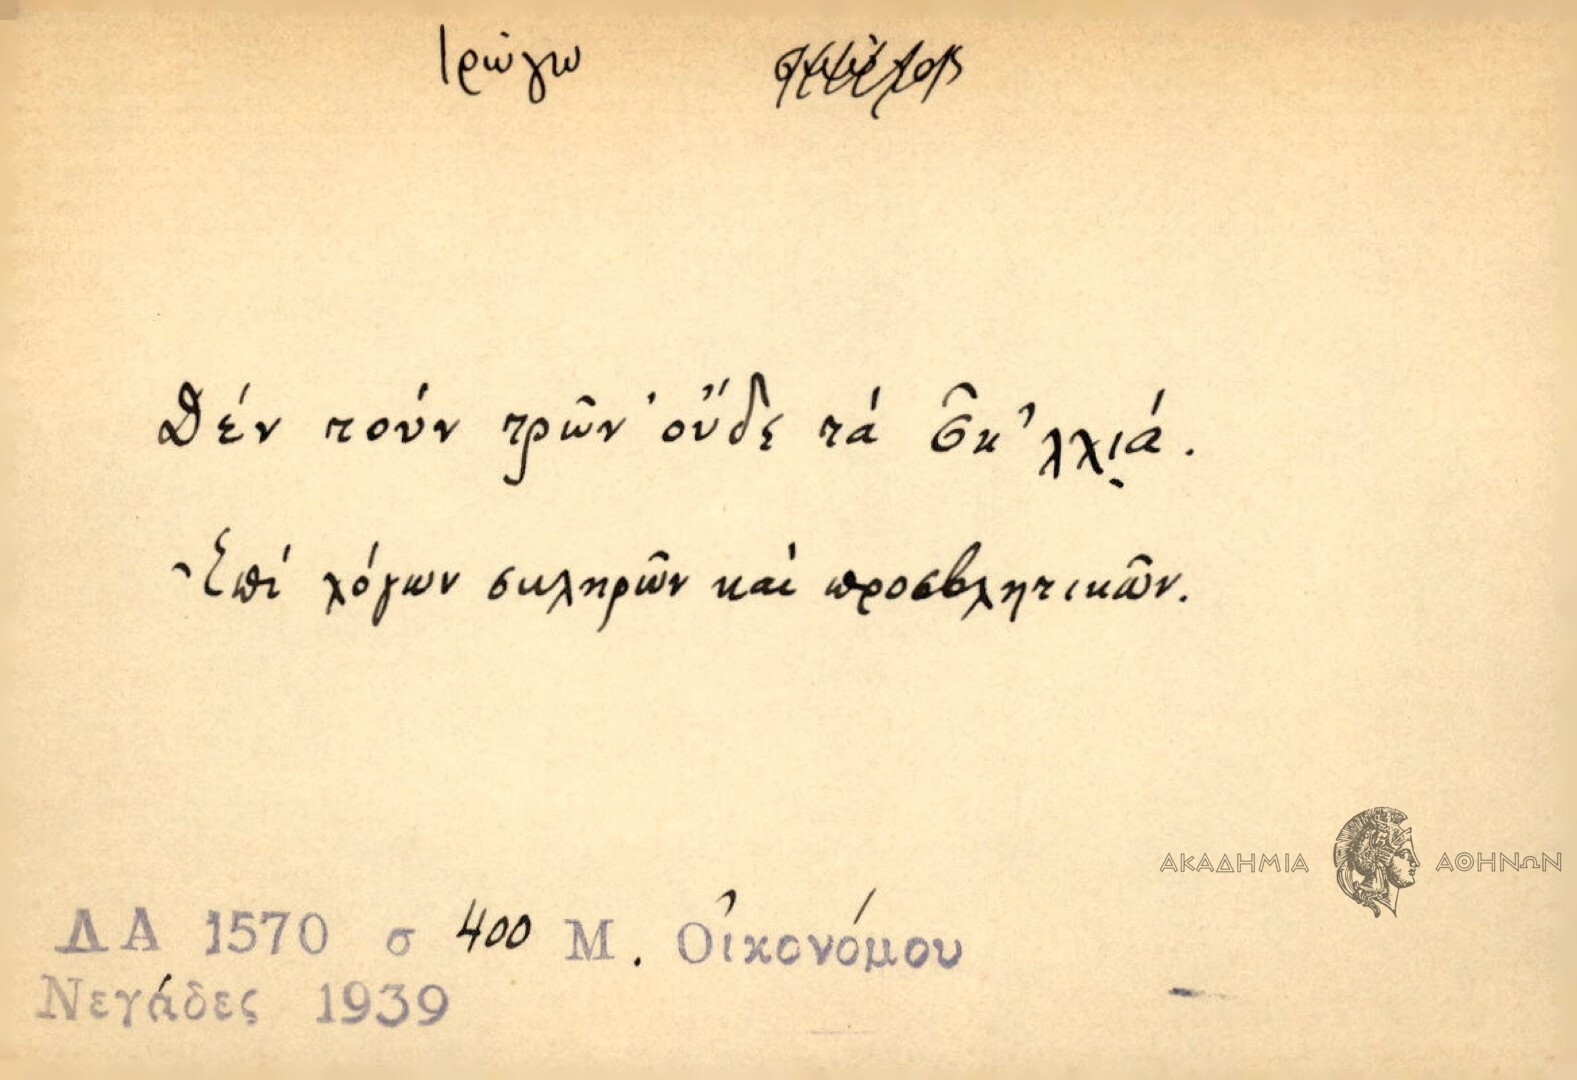 Τρώγω
Δέν τούν τρῶν' οὔδε τά σ̑κ'λλχιά.
Ἐπί λόγων σκληρῶν καί προσβλητικῶν.
ΑΚΑΔΗΜΙΑ ΑΘΗΝΩΝ
ΔΑ 1570 σ 400 Μ. Οἰκονόμου
Νεγάδες 1939